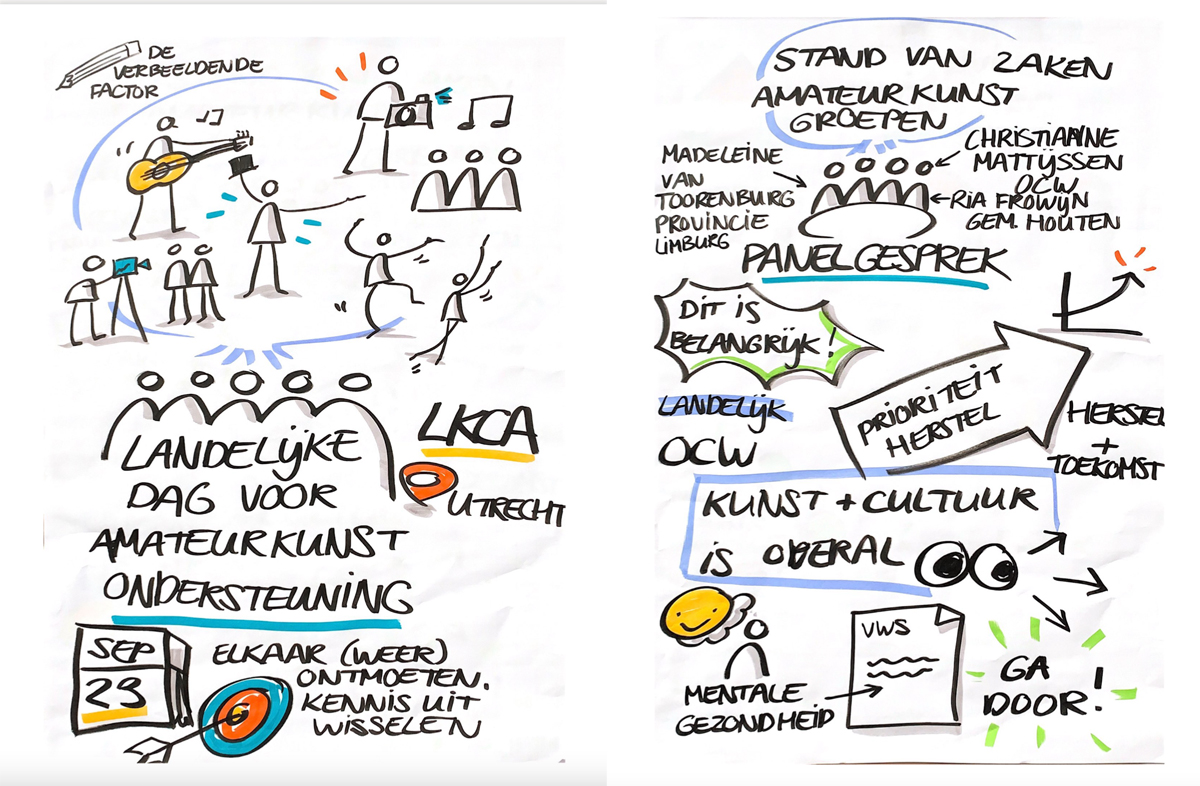 DE
VERBEELDENDE
FACTOR
LANDELIJKE
DAG VOOR
AMATEURKUNST
ONDERSTEUNING
LKCA
UTRECHT
SEP
23
ELKAAR (WEER)
ONTMOETEN.
KENNIS UIT
WISSELEN
STAND VAN ZAKEN
AMATEURKUNST
GROEPEN
MADELEINE
VAN
TOORENBURG
PROVINCIE
LIMBURG
CHRISTIANNE
MATTIJSSEN
OCW
RIA FROWIJN
GEM. HOUTEN
PANELGESPREK
DIT IS
BELANGRIJK!
LANDELIJK
OCW
PRIORITEIT
HERSTEL
HERSTEL
+
TOEKOMST
KUNST + CULTUUR
IS OVERAL
MENTALE
GEZONDHEID
VWS
GA
DOOR!